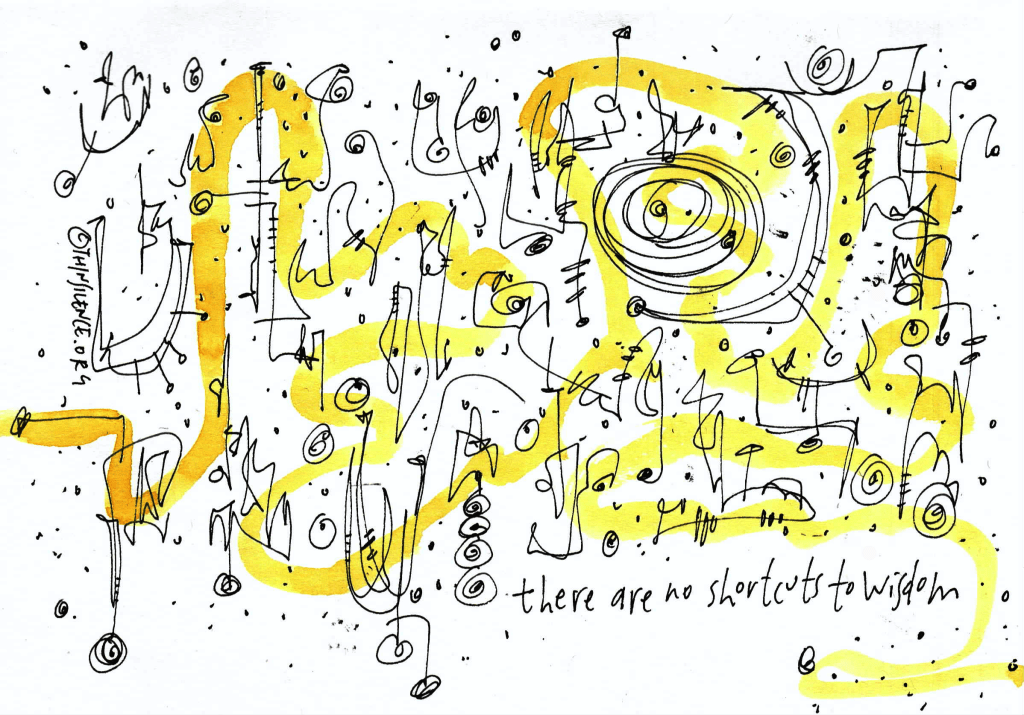 there are no shortcuts to wisdom
©THINSILENCE.ORG